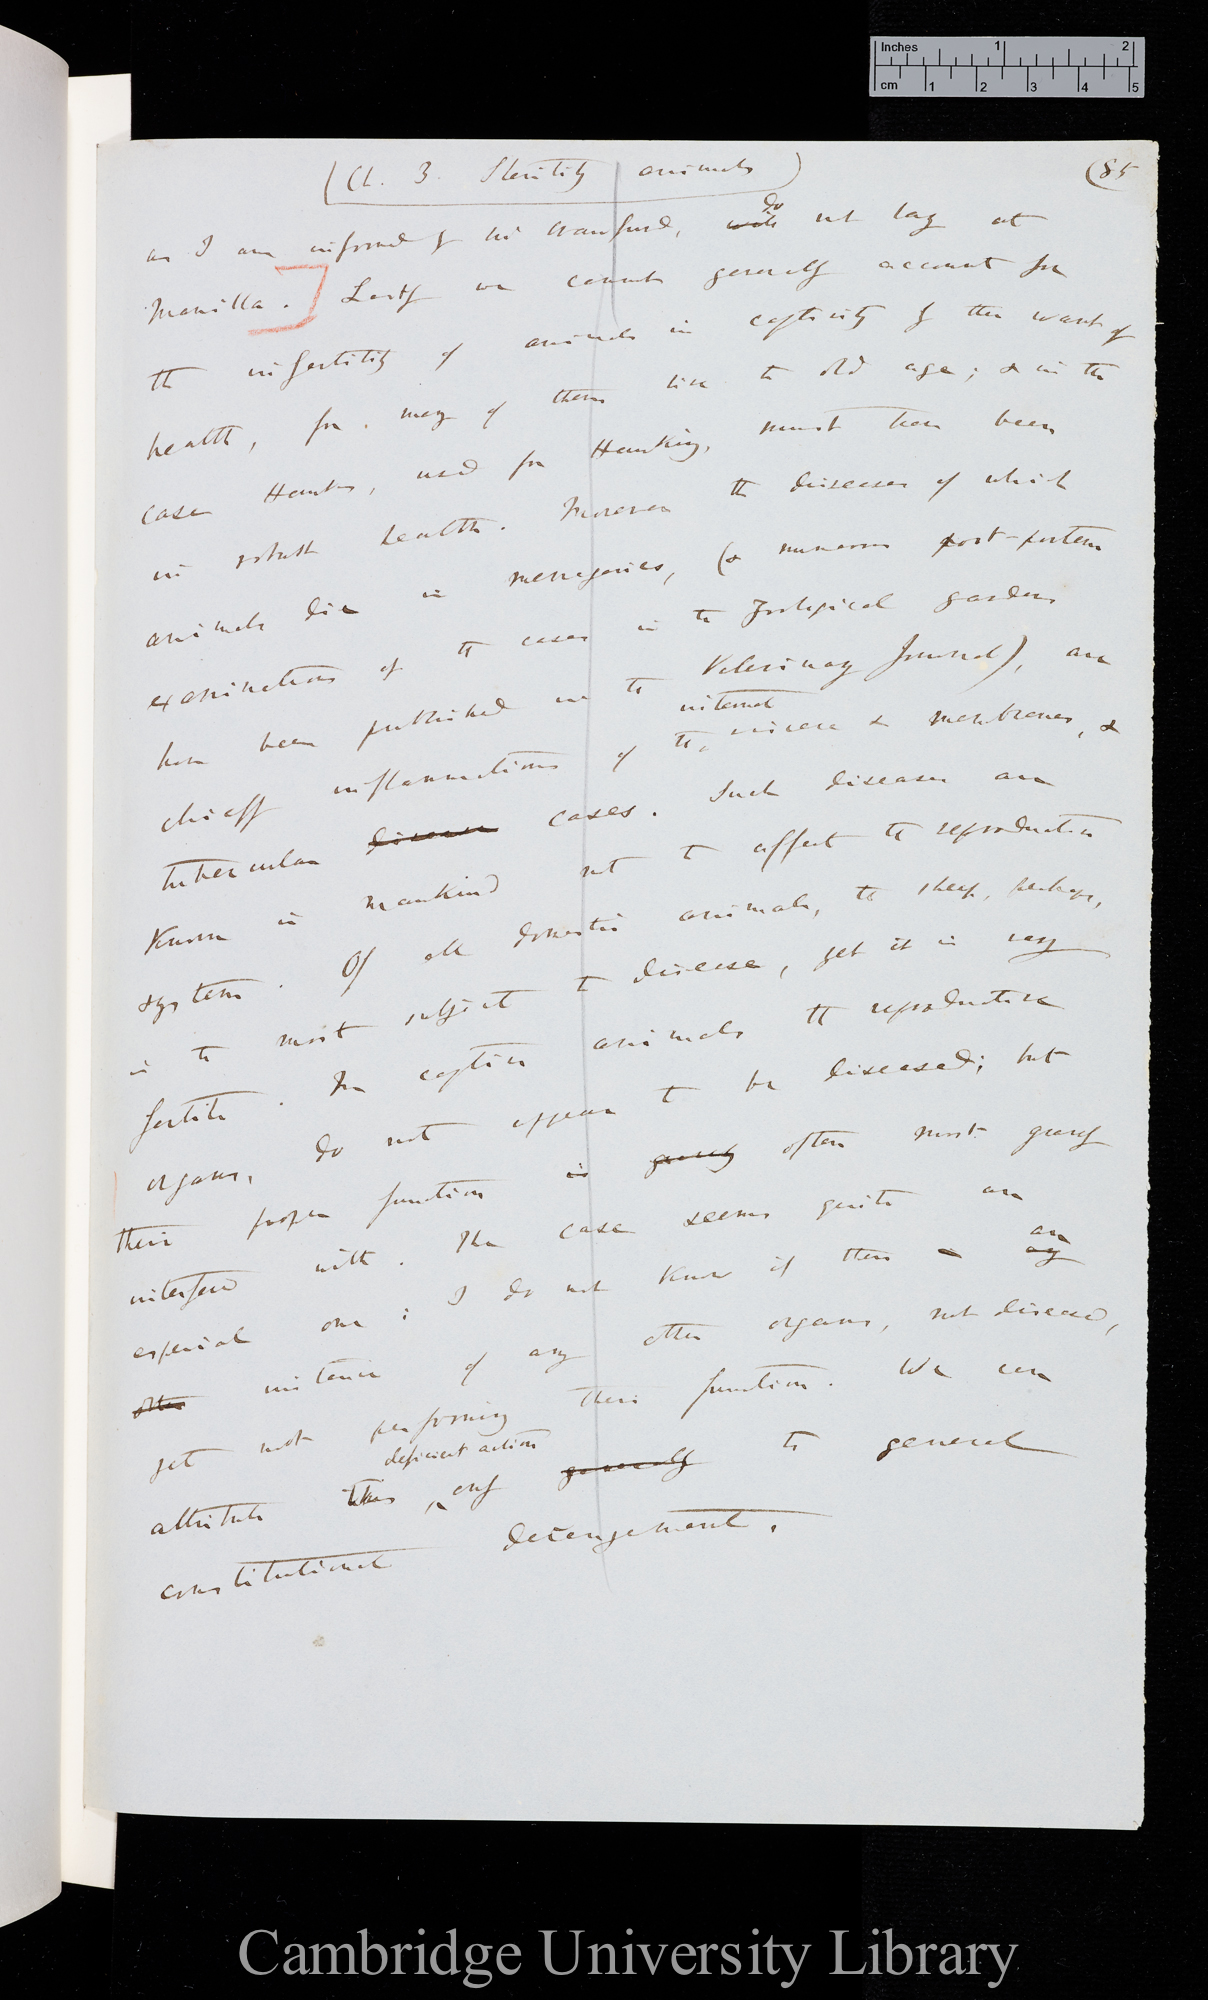 Inches 1 2
cm 1 2 3 4 5
(Ch. 3. Sterility animals)
(85
as I am informed by Mr Crawfurd, will do not lay at
Manilla.] Lastly we cannot generally account for
the infertility of animals in captivity by their want of
health, for many of them live to old age; & in the
case Hawks, used for Hawking, must have been
in robust health. Moreover the diseases of which
animals die in menageries, (& numerous post-portem
examinations of the cases in the Zoological gardens
have been published in the Veterinary Journal), are
internal
chiefly inflammations of the viscera & membranes, &
tubercular disease cases. Such diseases are
known in mankind not to affect the reproductive
system. Of all domestic animals, the sheep, perhaps,
is the most subject to disease, yet it is very
fertile. In captive animals the reproductive
organs, do not appear to be diseased; but
their proper function is greatly often most greatly
interfered with. The case seems quite an
especial one: I do not know if there is any an
other instance of any other organs, not diseased,
yet not performing their function. We can
deficient action
attribute this only generally to general
constitutional derangement.
Cambridge University Library